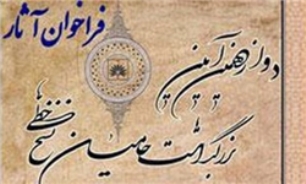 فراخوان آثار
دوازدهمین آیین
بزرگداشت حامیان نسخ خطی